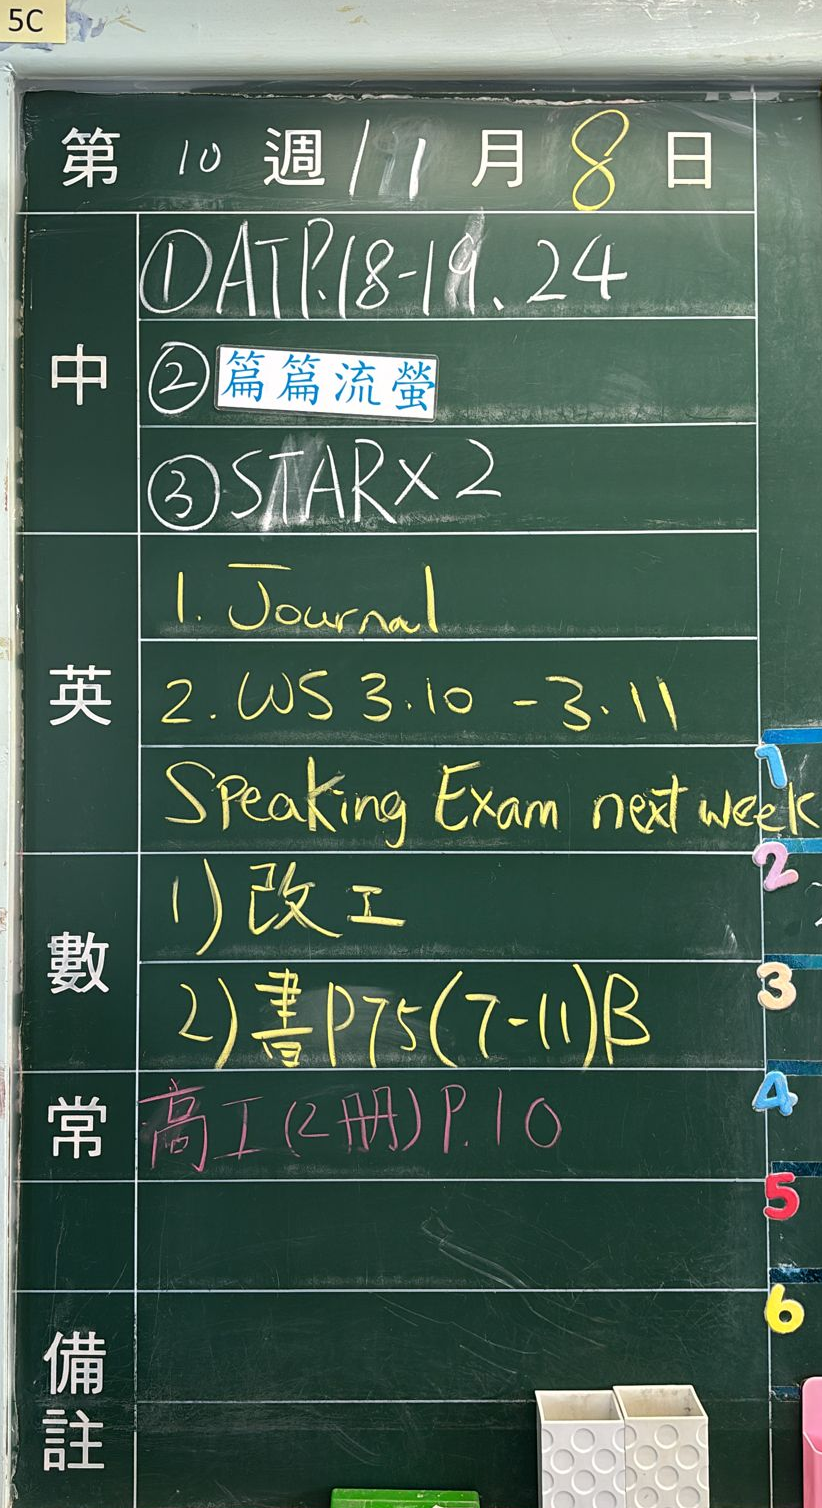 5C
第 10 週 11 月 8 日
中
①ATP.18-19、24
②篇篇流螢
③STAR×2
英
1. Journal
2. WS 3.10 - 3.11
Speaking Exam next week
數
1) 改工
2) 書P75(7-11)B
常
高工(2冊)P.10
備註
1
2
3
4
5
6